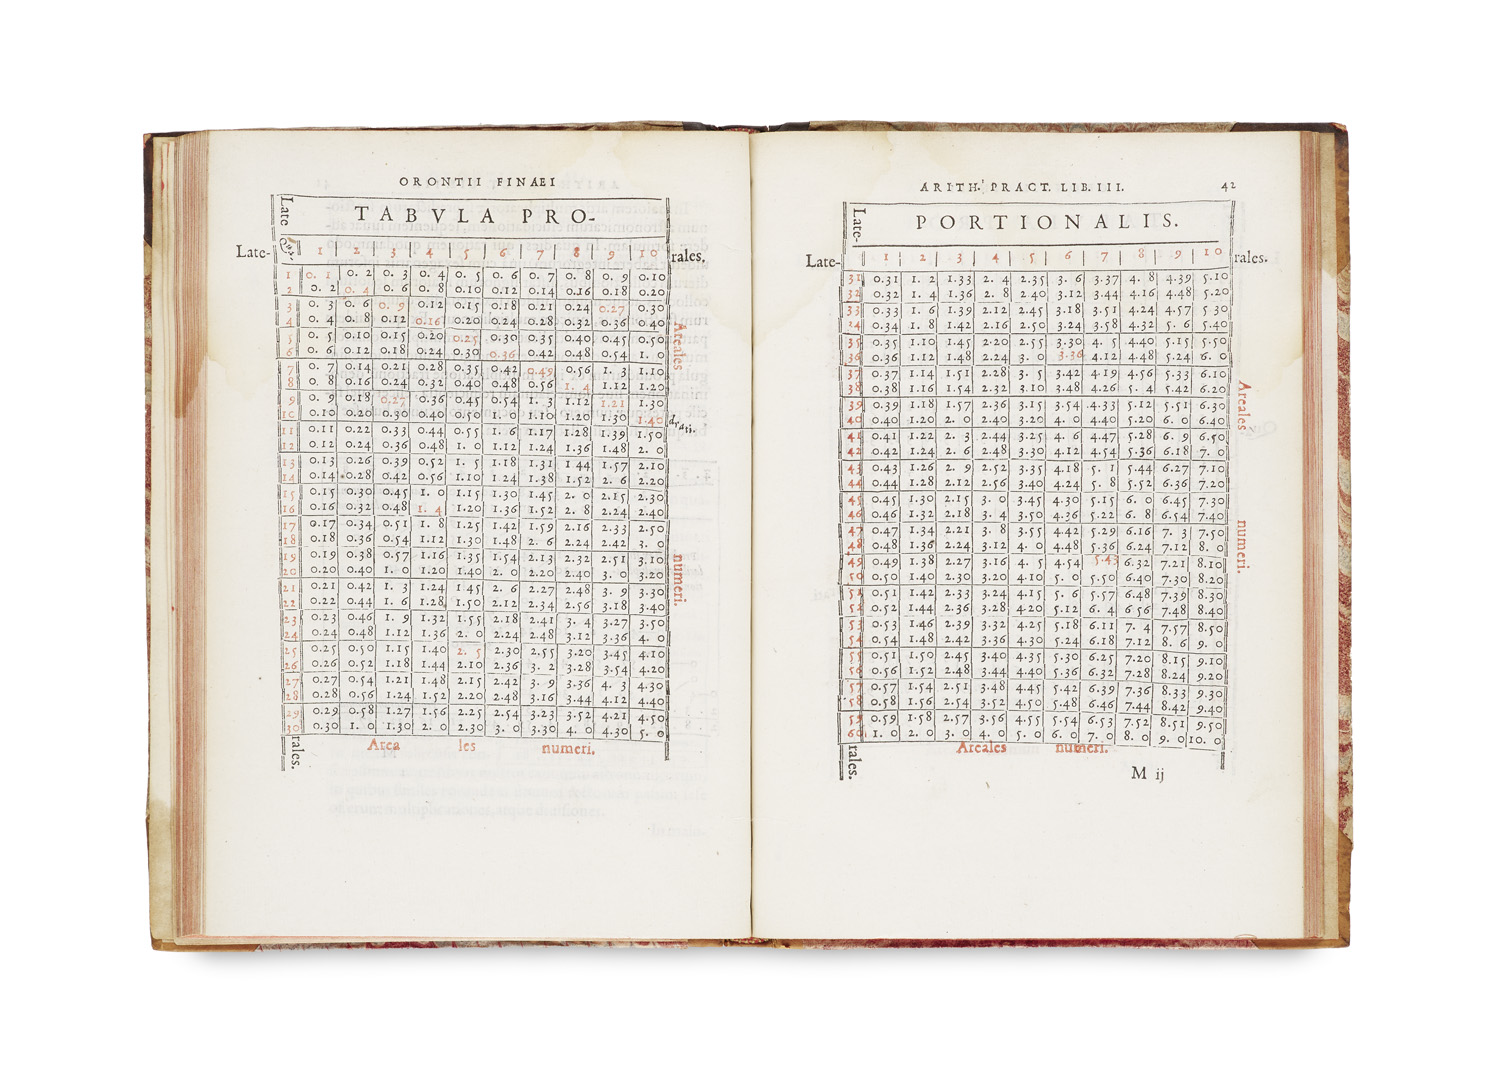 ORONTII FINAEI
TABVLA PRO-
Late
Late- Qua. 1 2 3 4 5 6 7 8 9 10 rales.
1 0. 1 0. 2 0. 3 0. 4 0. 5 0. 6 0. 7 0. 8 0. 9 0.10
2 0. 2 0. 4 0. 6 0. 8 0.10 0.12 0.14 0.16 0.18 0.20
3 0. 3 0. 6 0. 9 0.12 0.15 0.18 0.21 0.24 0.27 0.30
4 0. 4 0. 8 0.12 0.16 0.20 0.24 0.28 0.32 0.36 0.40
5 0. 5 0.10 0.15 0.20 0.25 0.30 0.35 0.40 0.45 0.50
6 0. 6 0.12 0.18 0.24 0.30 0.36 0.42 0.48 0.54 1. 0
7 0. 7 0.14 0.21 0.28 0.35 0.42 0.49 0.56 1. 3 1.10
8 0. 8 0.16 0.24 0.32 0.40 0.48 0.56 1. 4 1.12 1.20
9 0. 9 0.18 0.27 0.36 0.45 0.54 1. 3 1.12 1.21 1.30
10 0.10 0.20 0.30 0.40 0.50 1. 0 1.10 1.20 1.30 1.40 drati.
11 0.11 0.22 0.33 0.44 0.55 1. 6 1.17 1.28 1.39 1.50
12 0.12 0.24 0.36 0.48 1. 0 1.12 1.24 1.36 1.48 2. 0
13 0.13 0.26 0.39 0.52 1. 5 1.18 1.31 1 44 1.57 2.10
14 0.14 0.28 0.42 0.56 1.10 1.24 1.38 1.52 2. 6 2.20
15 0.15 0.30 0.45 1. 0 1.15 1.30 1.45 2. 0 2.15 2.30
16 0.16 0.32 0.48 1. 4 1.20 1.36 1.52 2. 8 2.24 2.40
17 0.17 0.34 0.51 1. 8 1.25 1.42 1.59 2.16 2.33 2.50
18 0.18 0.36 0.54 1.12 1.30 1.48 2. 6 2.24 2.42 3. 0
19 0.19 0.38 0.57 1.16 1.35 1.54 2.13 2.32 2.51 3.10
20 0.20 0.40 1. 0 1.20 1.40 2. 0 2.20 2.40 3. 0 3.20
21 0.21 0.42 1. 3 1.24 1.45 2. 6 2.27 2.48 3. 9 3.30
22 0.22 0.44 1. 6 1.28 1.50 2.12 2.34 2.56 3.18 3.40
23 0.23 0.46 1. 9 1.32 1.55 2.18 2.41 3. 4 3.27 3.50
24 0.24 0.48 1.12 1.36 2. 0 2.24 2.48 3.12 3.36 4. 0
25 0.25 0.50 1.15 1.40 2. 5 2.30 2.55 3.20 3.45 4.10
26 0.26 0.52 1.18 1.44 2.10 2.36 3. 2 3.28 3.54 4.20
27 0.27 0.54 1.21 1.48 2.15 2.42 3. 9 3.36 4. 3 4.30
28 0.28 0.56 1.24 1.52 2.20 2.48 3.16 3.44 4.12 4.40
29 0.29 0.58 1.27 1.56 2.25 2.54 3.23 3.52 4.21 4.50
30 0.30 1. 0 1.30 2. 0 2.30 3. 0 3.30 4. 0 4.30 5. 0
rales.
Areales numeri.
Areales numeri.
ARITH. PRACT. LIB. III. 42
PORTIONALIS.
Late-
Late- 1 2 3 4 5 6 7 8 9 10 rales.
31 0.31 1. 2 1.33 2. 4 2.35 3. 6 3.37 4. 8 4.39 5.10
32 0.32 1. 4 1.36 2. 8 2 40 3.12 3.44 4.16 4.48 5.20
33 0.33 1. 6 1.39 2.12 2.45 3.18 3.51 4.24 4.57 5 30
24 0.34 1. 8 1.42 2.16 2.50 3.24 3.58 4.32 5. 6 5.40
35 0.35 1.10 1.45 2.20 2.55 3.30 4. 5 4.40 5.15 5.50
36 0.36 1.12 1.48 2.24 3. 0 3.36 4.12 4.48 5.24 6. 0
37 0.37 1.14 1.51 2.28 3. 5 3.42 4.19 4.56 5.33 6.10
38 0.38 1.16 1.54 2.32 3.10 3.48 4.26 5. 4 5.42 6.20
39 0.39 1.18 1.57 2.36 3.15 3.54 4.33 5.12 5.51 6.30
40 0.40 1.20 2. 0 2.40 3.20 4. 0 4.40 5.20 6. 0 6.40
41 0.41 1.22 2. 3 2.44 3.25 4. 6 4.47 5.28 6. 9 6.50
42 0.42 1.24 2. 6 2.48 3.30 4.12 4.54 5.36 6.18 7. 0
43 0.43 1.26 2. 9 2.52 3.35 4.18 5. 1 5.44 6.27 7.10
44 0.44 1.28 2.12 2.56 3.40 4.24 5. 8 5.52 6.36 7.20
45 0.45 1.30 2.15 3. 0 3.45 4.30 5.15 6. 0 6.45 7.30
46 0.46 1.32 2.18 3. 4 3.50 4.36 5.22 6. 8 6.54 7.40
47 0.47 1.34 2.21 3. 8 3.55 4.42 5.29 6.16 7. 3 7.50
48 0.48 1.36 2.24 3.12 4. 0 4.48 5.36 6.24 7.12 8. 0
49 0.49 1.38 2.27 3.16 4. 5 4.54 5.43 6.32 7.21 8.10
50 0.50 1.40 2.30 3.20 4.10 5. 0 5.50 6.40 7.30 8.20
51 0.51 1.42 2.33 3.24 4.15 5. 6 5.57 6.48 7.39 8.30
52 0.52 1.44 2.36 3.28 4.20 5.12 6. 4 6.56 7.48 8.40
53 0.53 1.46 2.39 3.32 4.25 5.18 6.11 7. 4 7.57 8.50
54 0.54 1.48 2.42 3.36 4.30 5.24 6.18 7.12 8. 6 9. 0
55 0.55 1.50 2.45 3.40 4.35 5.30 6.25 7.20 8.15 9.10
56 0.56 1.52 2.48 3.44 4.40 5.36 6.32 7.28 8.24 9.20
57 0.57 1.54 2.51 3.48 4.45 5.42 6.39 7.36 8.33 9.30
58 0.58 1.56 2.54 3.52 4.50 5.48 6.46 7.44 8.42 9.40
59 0.59 1.58 2.57 3.56 4.55 5.54 6.53 7.52 8.51 9.50
60 1. 0 2. 0 3. 0 4. 0 5. 0 6. 0 7. 0 8. 0 9. 0 10. 0
rales.
Areales numeri.
Areales numeri.
M ij